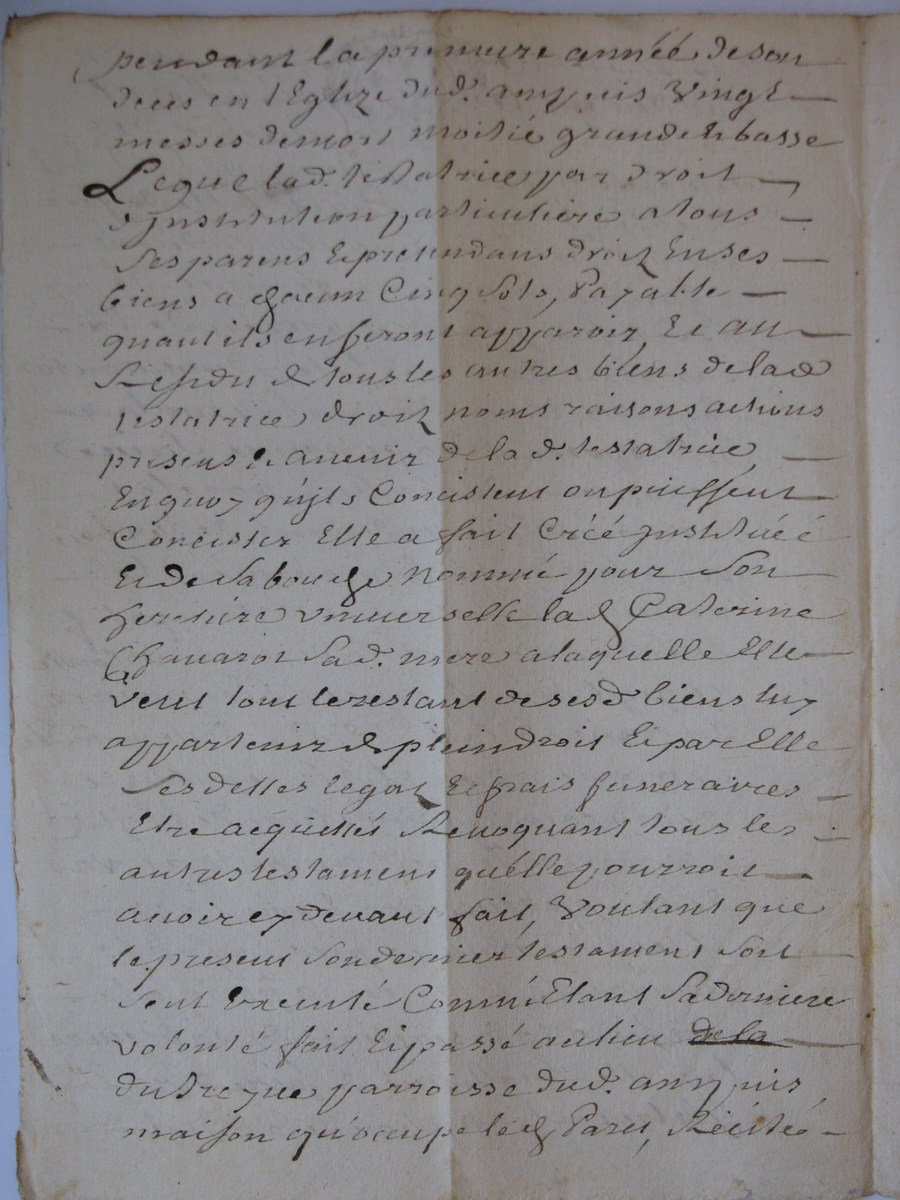 pendant la premiere année de son
deces en l'Eglize dud. ampuis vingt
messes de mort moitié grande et basse
Legue lad. testatrice par droit
d'Institution particuliere a tous
ses parens et pretendans droit en ses
biens a chacun Cinq sols, payable
quant ils en feront apparoir, et au
Residu de tous les autres biens de lad
testatrice droit noms raisons actions
presens et auenir de la d. testatrice
En quoy qu'ils Concistent ou puissent
Concister Elle a fait Créé Institué
Et de sa bouche nommé pour son
heretiere vniuerselle la d Caterine
Chauarot sa d. mere a laquelle Elle
veut tout le restant de ses d. biens luy
appartenir de plein droit Et par Elle
ses dettes legat et frais funeraires
Etre acquittés Reuoquant tous les
autres testament qu'elle pourroit
auoir cy deuant fait, Voulant que
le present son dernier testament soit
seul Executé Comme Etant sa derniere
volonté fait Et passé au lieu de la
du parroisse dud. ampuis
maison qu'occupe led Paret, Récité